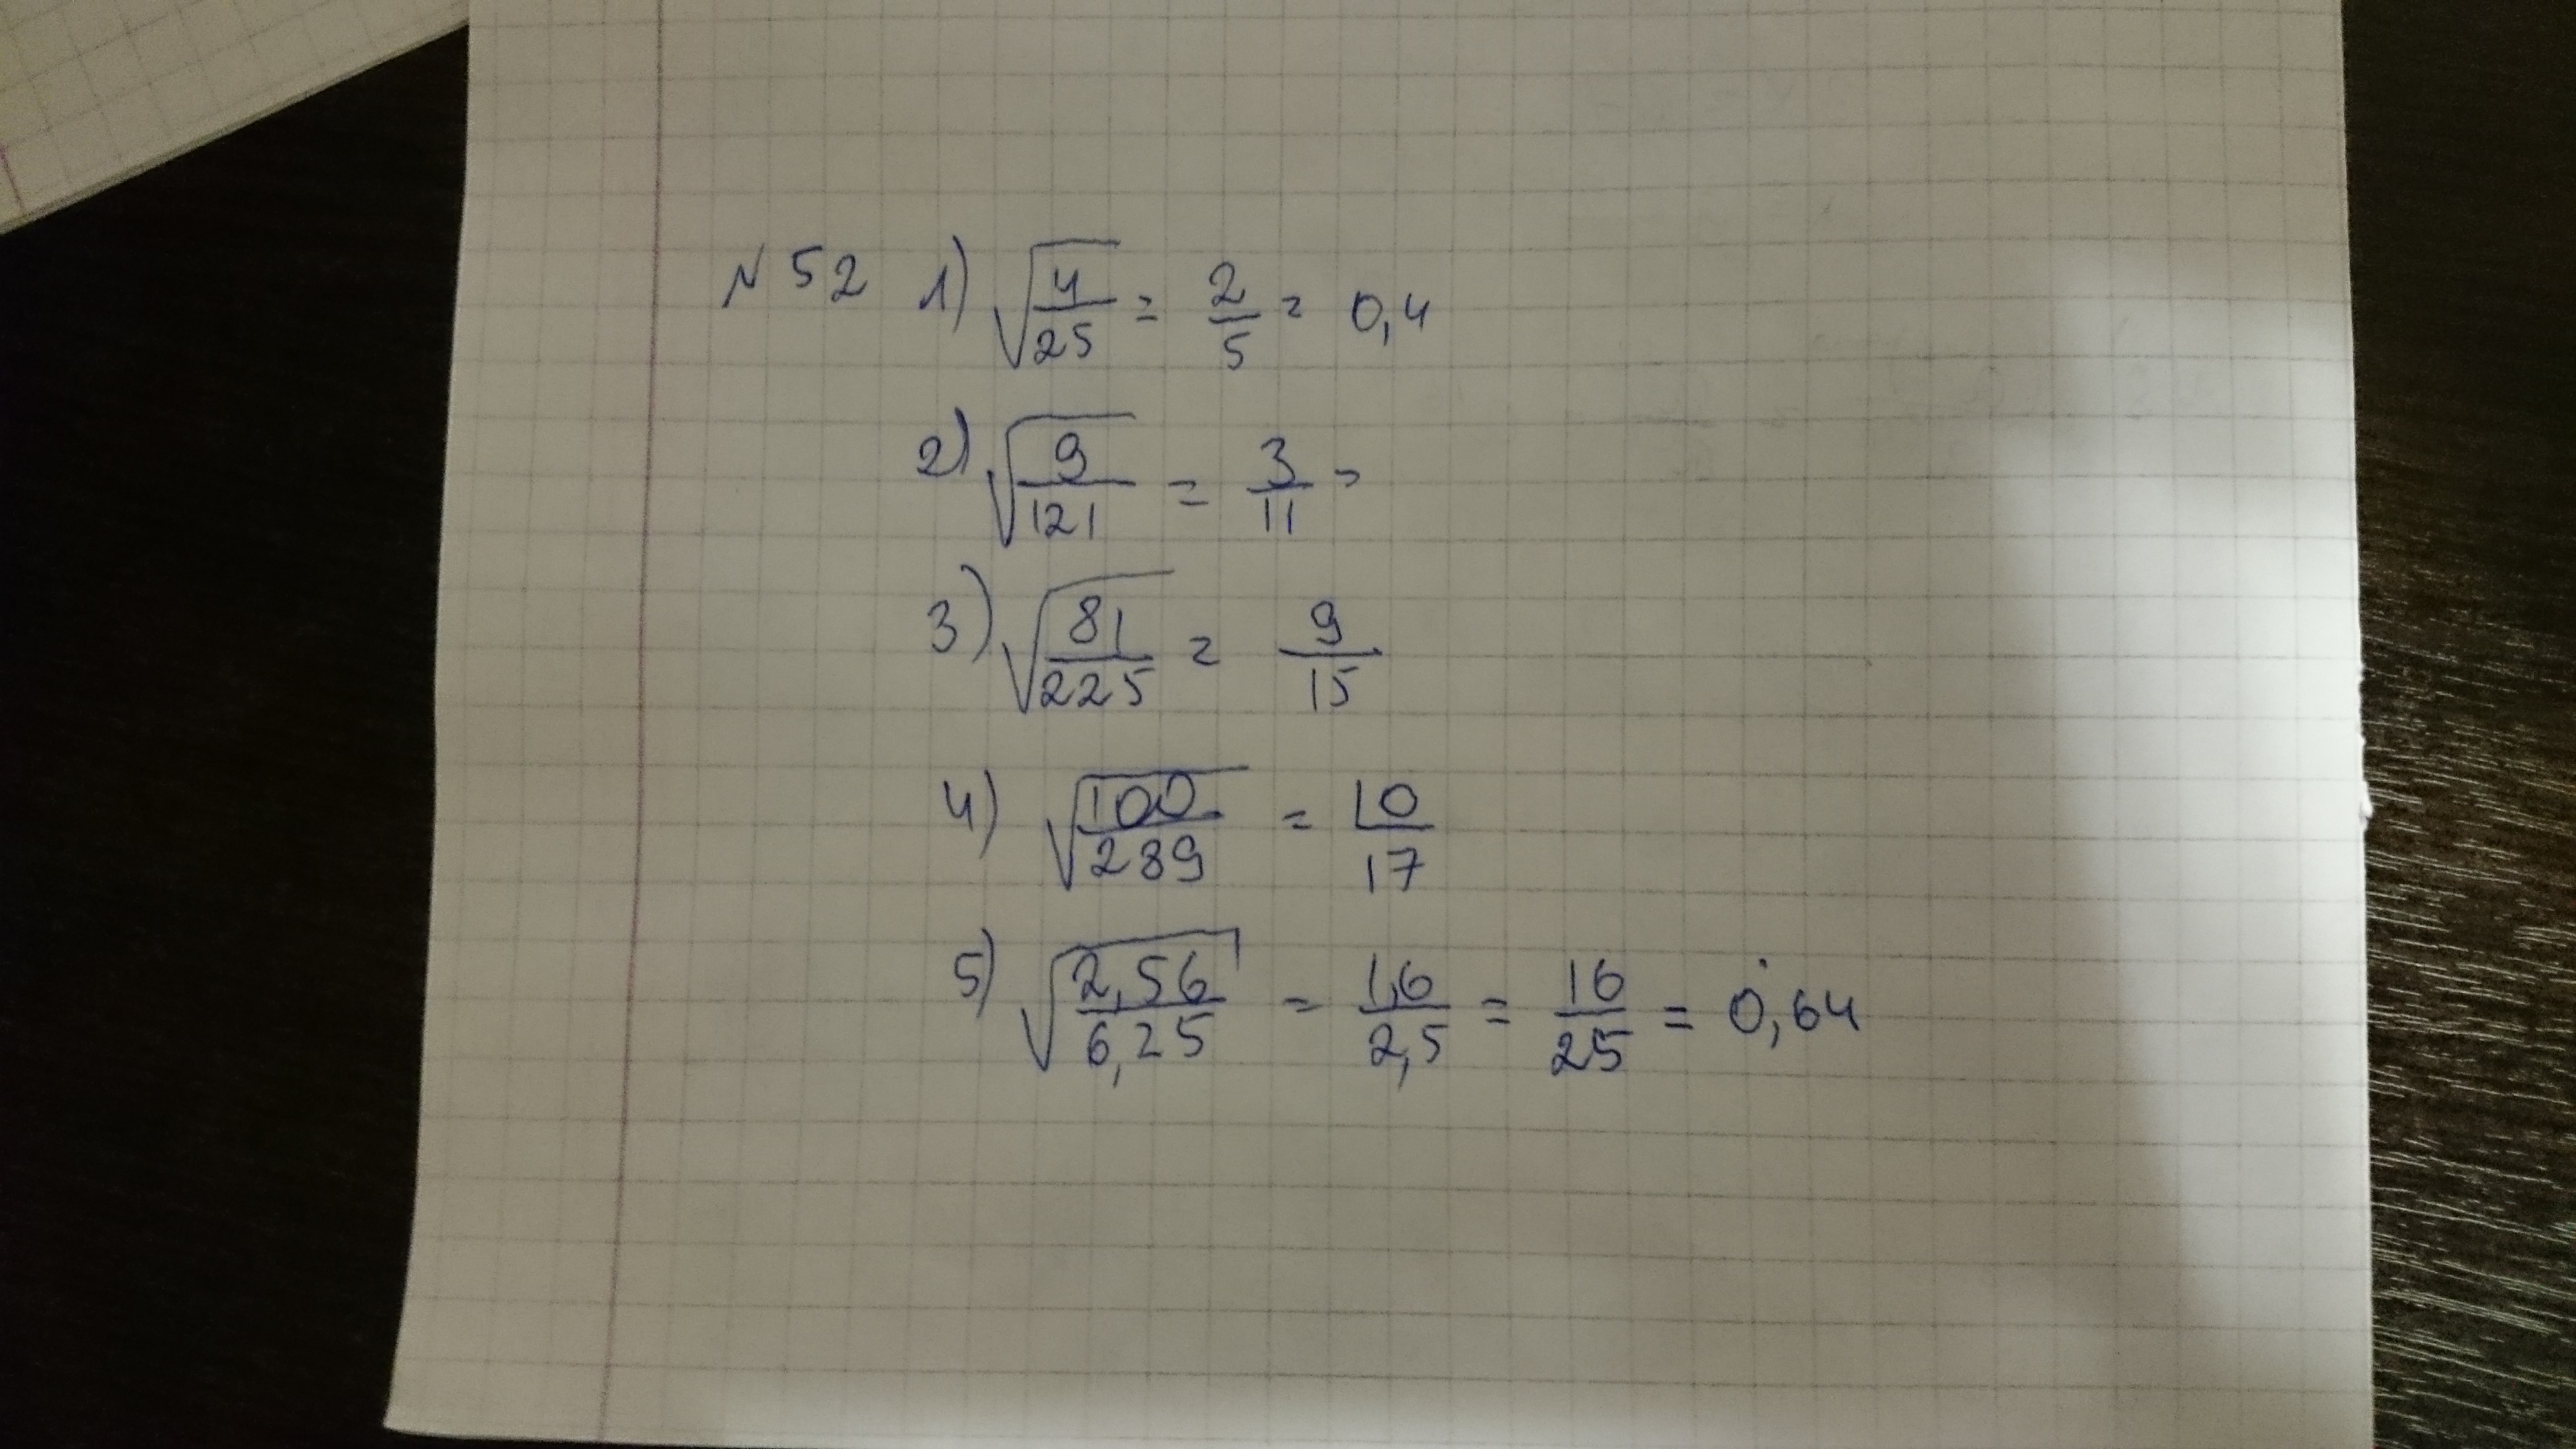 N 52 1) √(4/25) = 2/5 = 0,4
2) √(9/121) = 3/11 =
3) √(81/225) = 9/15
4) √(100/289) = 10/17
5) √(2,56/6,25) = 1,6/2,5 = 16/25 = 0,64